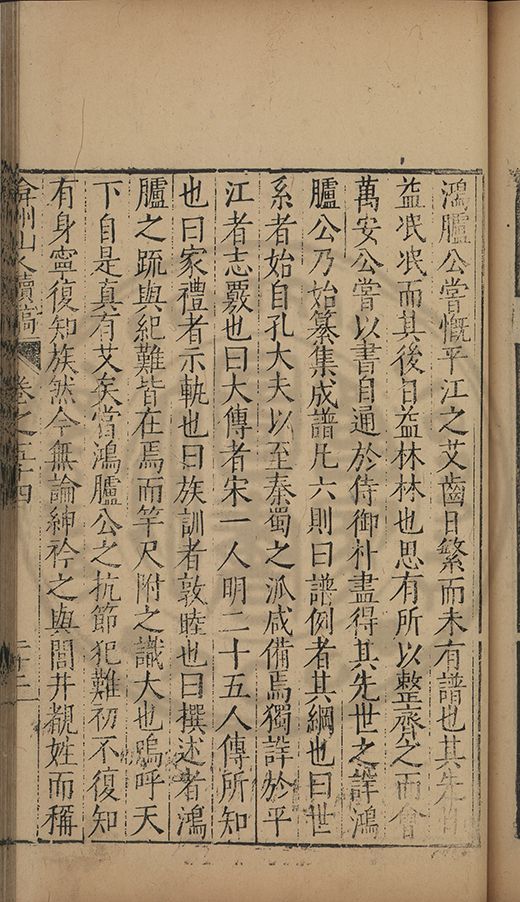 鴻臚公嘗慨平江之艾齒日繁而未有譜也其先自
益泯泯而其後日益林林也思有所以整齊之而會
萬安公嘗以書自通於侍御朴盡得其先世之詳鴻
臚公乃始纂集成譜凡六則曰譜例者其綱也曰世
系者始自孔大夫以至秦蜀之派咸備焉獨詳於平
江者志覈也曰大傳者宋一人明二十五人傳所知
也曰家禮者示軌也曰族訓者敦睦也曰撰述者鴻
臚之疏與紀難皆在焉而竿尺附之識大也嗚呼天
下自是真有艾矣當鴻臚公之抗節犯難初不復知
有身寧復知族然今無論紳衿之與閭井覩姓而稱
弇州山人續稿 卷之五十四 二十二